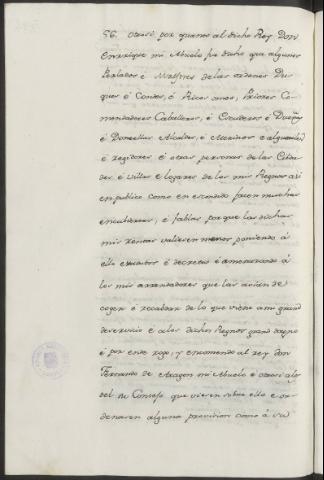 56. Otrosi por quanto al dicho Rey Don
Enrrique mi Abuelo fue dicho que algunos
Perlados é Maestres de las ordenes Du
ques é Condes, é Ricos omes, Priores Co
mendadores Caballeros, é Escuderos é Dueñas
é Doncellas Alcaldes, é Merinos é alguaciles
é regidores é otras personas de las Cibda
des é villas é logares de los mis Regnos asi
en publico como en escondido facen muchas
encubiertas, é fablas por que las dichas
mis rentas valiesen menos poniendo á
ello estatutos é decretos é amenazando á
los mis arrendadores que las avien de
coger é recabdar de lo que viene a mi grand
deservicio é a los dichos Regnos grand dagno
é por ende rogo, y encomendo al rey don
Fernando de Aragon mi Abuelo é otrosi a los
del su Consejo que viesen sobre ello é or
denasen alguna provision como á su